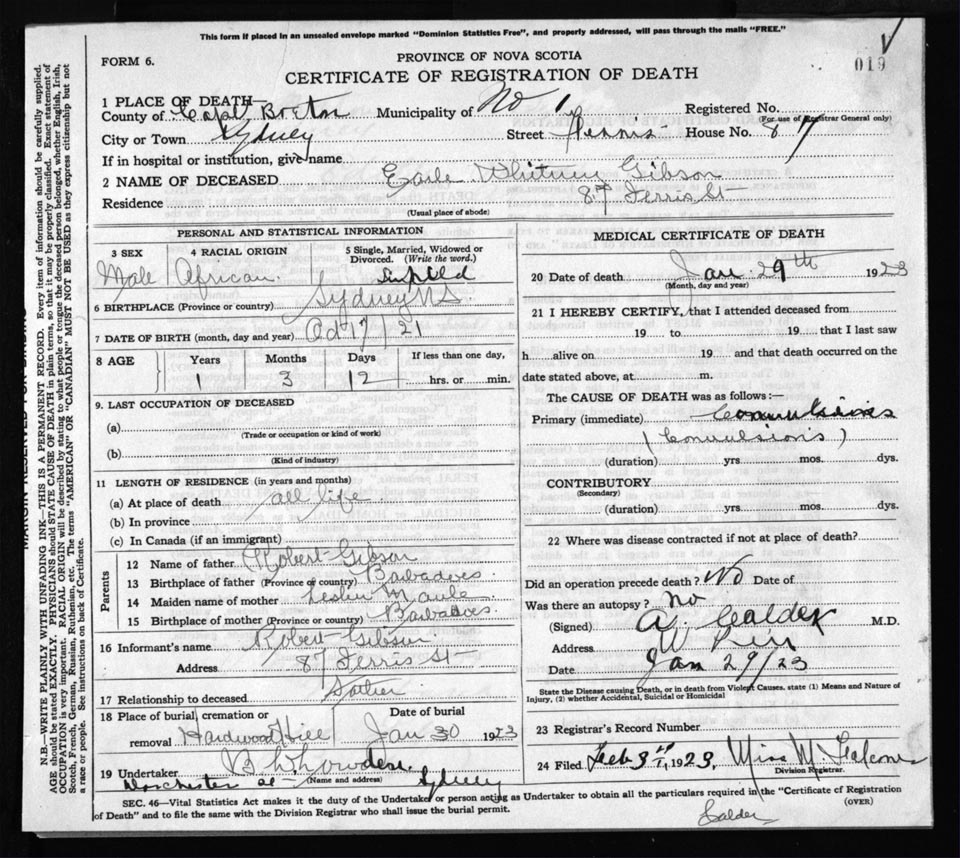 This form if placed in an unsealed envelope marked "Dominion Statistics Free", and properly addressed, will pass through the mails "FREE."
FORM 6.
PROVINCE OF NOVA SCOTIA
019
CERTIFICATE OF REGISTRATION OF DEATH
1 PLACE OF DEATH—
County of Cape Breton Municipality of No 1 Registered No.
(For use of Registrar General only)
City or Town Sydney Street Ferris House No. 87
If in hospital or institution, give name
2 NAME OF DECEASED Earle Whitney Gibson
Residence 87 Ferris St
(Usual place of abode)
PERSONAL AND STATISTICAL INFORMATION
3 SEX 4 RACIAL ORIGIN 5 Single, Married, Widowed or Divorced. (Write the word.)
Male African
6 BIRTHPLACE (Province or country) Sydney N S
7 DATE OF BIRTH (month, day and year) Oct 17/21
8 AGE Years Months Days If less than one day,
1 3 12 hrs. or min.
9. LAST OCCUPATION OF DECEASED
(a)
(Trade or occupation or kind of work)
(b)
(Kind of industry)
11 LENGTH OF RESIDENCE (in years and months)
(a) At place of death all life
(b) In province
(c) In Canada (if an immigrant)
Parents
12 Name of father Robert Gibson
13 Birthplace of father (Province or country) Barbadoes
14 Maiden name of mother
15 Birthplace of mother (Province or country) Barbadoes
16 Informant's name Robert Gibson
Address 87 Ferris St
17 Relationship to deceased Father
18 Place of burial, cremation or removal Hardwood Hill Date of burial Jan 30 1923
19 Undertaker
(Name and address)
Dorchester St Sydney
MEDICAL CERTIFICATE OF DEATH
20 Date of death Jan 29th 1923
(Month, day and year)
21 I HEREBY CERTIFY, that I attended deceased from
19 to 19 that I last saw
h alive on 19 and that death occurred on the
date stated above, at m.
The CAUSE OF DEATH was as follows:—
Primary (immediate) Convulsions
(Convulsions)
(duration) yrs. mos. dys.
CONTRIBUTORY
(Secondary)
(duration) yrs. mos. dys.
22 Where was disease contracted if not at place of death?
Did an operation precede death? No Date of
Was there an autopsy? No
(Signed) A. Calder M.D.
Address W Pier
Date Jan 29/23
State the Disease causing Death, or in death from Violent Causes, state (1) Means and Nature of Injury, (2) whether Accidental, Suicidal or Homicidal
23 Registrar's Record Number
24 Filed Feb 3rd, 1923, Miss M
Division Registrar.
SEC. 46—Vital Statistics Act makes it the duty of the Undertaker or person acting as Undertaker to obtain all the particulars required in the "Certificate of Registration of Death" and to file the same with the Division Registrar who shall issue the burial permit.
(OVER)
Calder
MARGIN RESERVED FOR BINDING
N.B.—WRITE PLAINLY WITH UNFADING INK—THIS IS A PERMANENT RECORD. Every item of information should be carefully supplied.
AGE should be stated EXACTLY. PHYSICIANS should STATE CAUSE OF DEATH in plain terms, so that it may be properly classified. Exact statement of
OCCUPATION is very important. RACIAL ORIGIN will be described by stating to what people or tongue the deceased person belonged, whether English, Irish,
Scotch, French, German, Russian, Ruthenian, etc. The terms "AMERICAN" or "CANADIAN" MUST NOT BE USED as they express citizenship but not
a race or people. See instructions on back of Certificate.